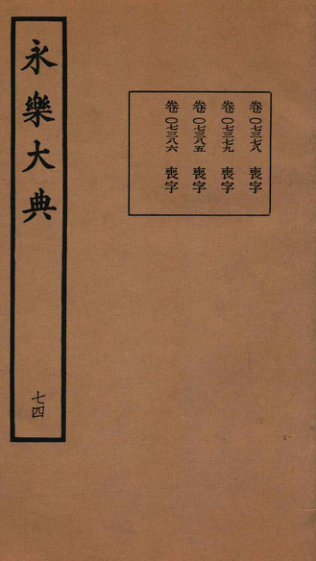 永樂大典
七四
卷〇七三七八 喪字
卷〇七三七九 喪字
卷〇七三八五 喪字
卷〇七三八六 喪字